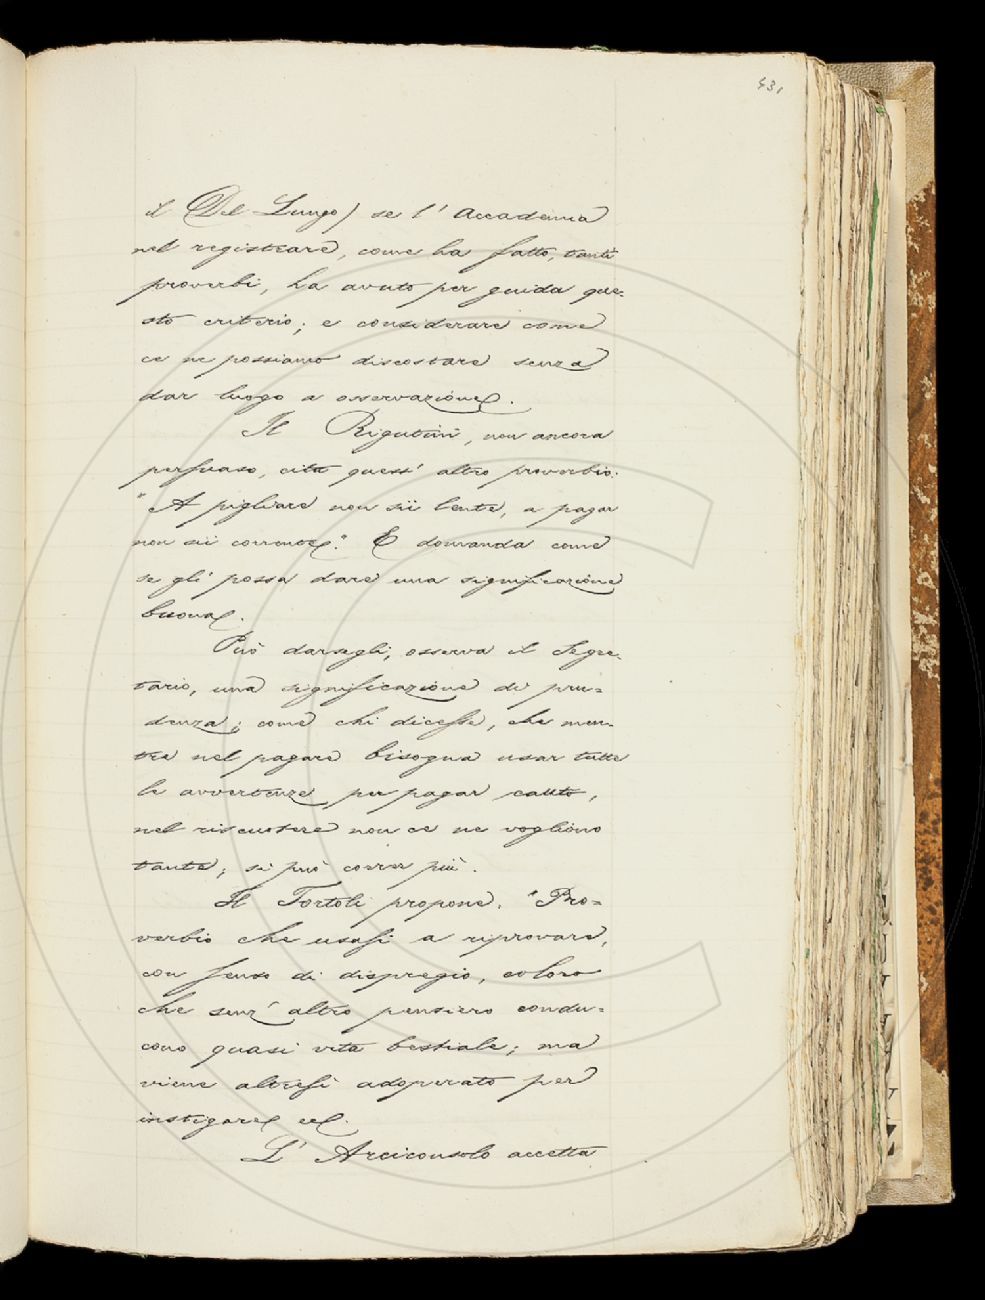 431
il Del Lungo) se l'Accademia
nel registrare, come ha fatto, tanti
proverbi, ha avuto per guida que-
sto criterio; e considerare come
ce ne possiamo discostare senza
dar luogo a osservazione.
Il Rigutini, non ancora
persuaso, cita quest'altro proverbio:
"A pigliare non sii lente, a pagar
non sii corrente." E domanda come
se gli possa dare una significazione
buona.
Può darsegli, osserva il Segre-
tario, una significazione di pru-
denza; come chi dicesse, che men-
tre nel pagare bisogna usar tutte
le avvertenze per pagar cauto,
nel riscuotere non ce ne vogliono
tante; si può correr più.
Il Tortoli propone. "Pro-
verbio che usasi a riprovare,
con senso di dispregio, coloro
che senz'altro pensiero condu-
cono quasi vita bestiale; ma
viene altresì adoperato per
instigare ec.
L'Arciconsolo accetta